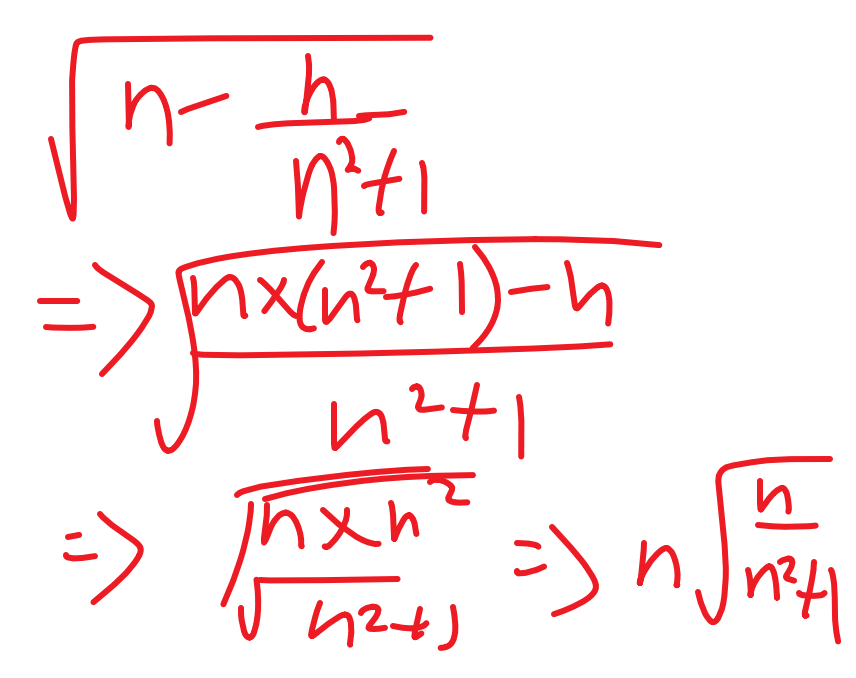 √(n - n/(n²+1))
=> √((n×(n²+1)-n)/(n²+1))
=> √(n×n²)/√(n²+1) => n√(n/(n²+1))